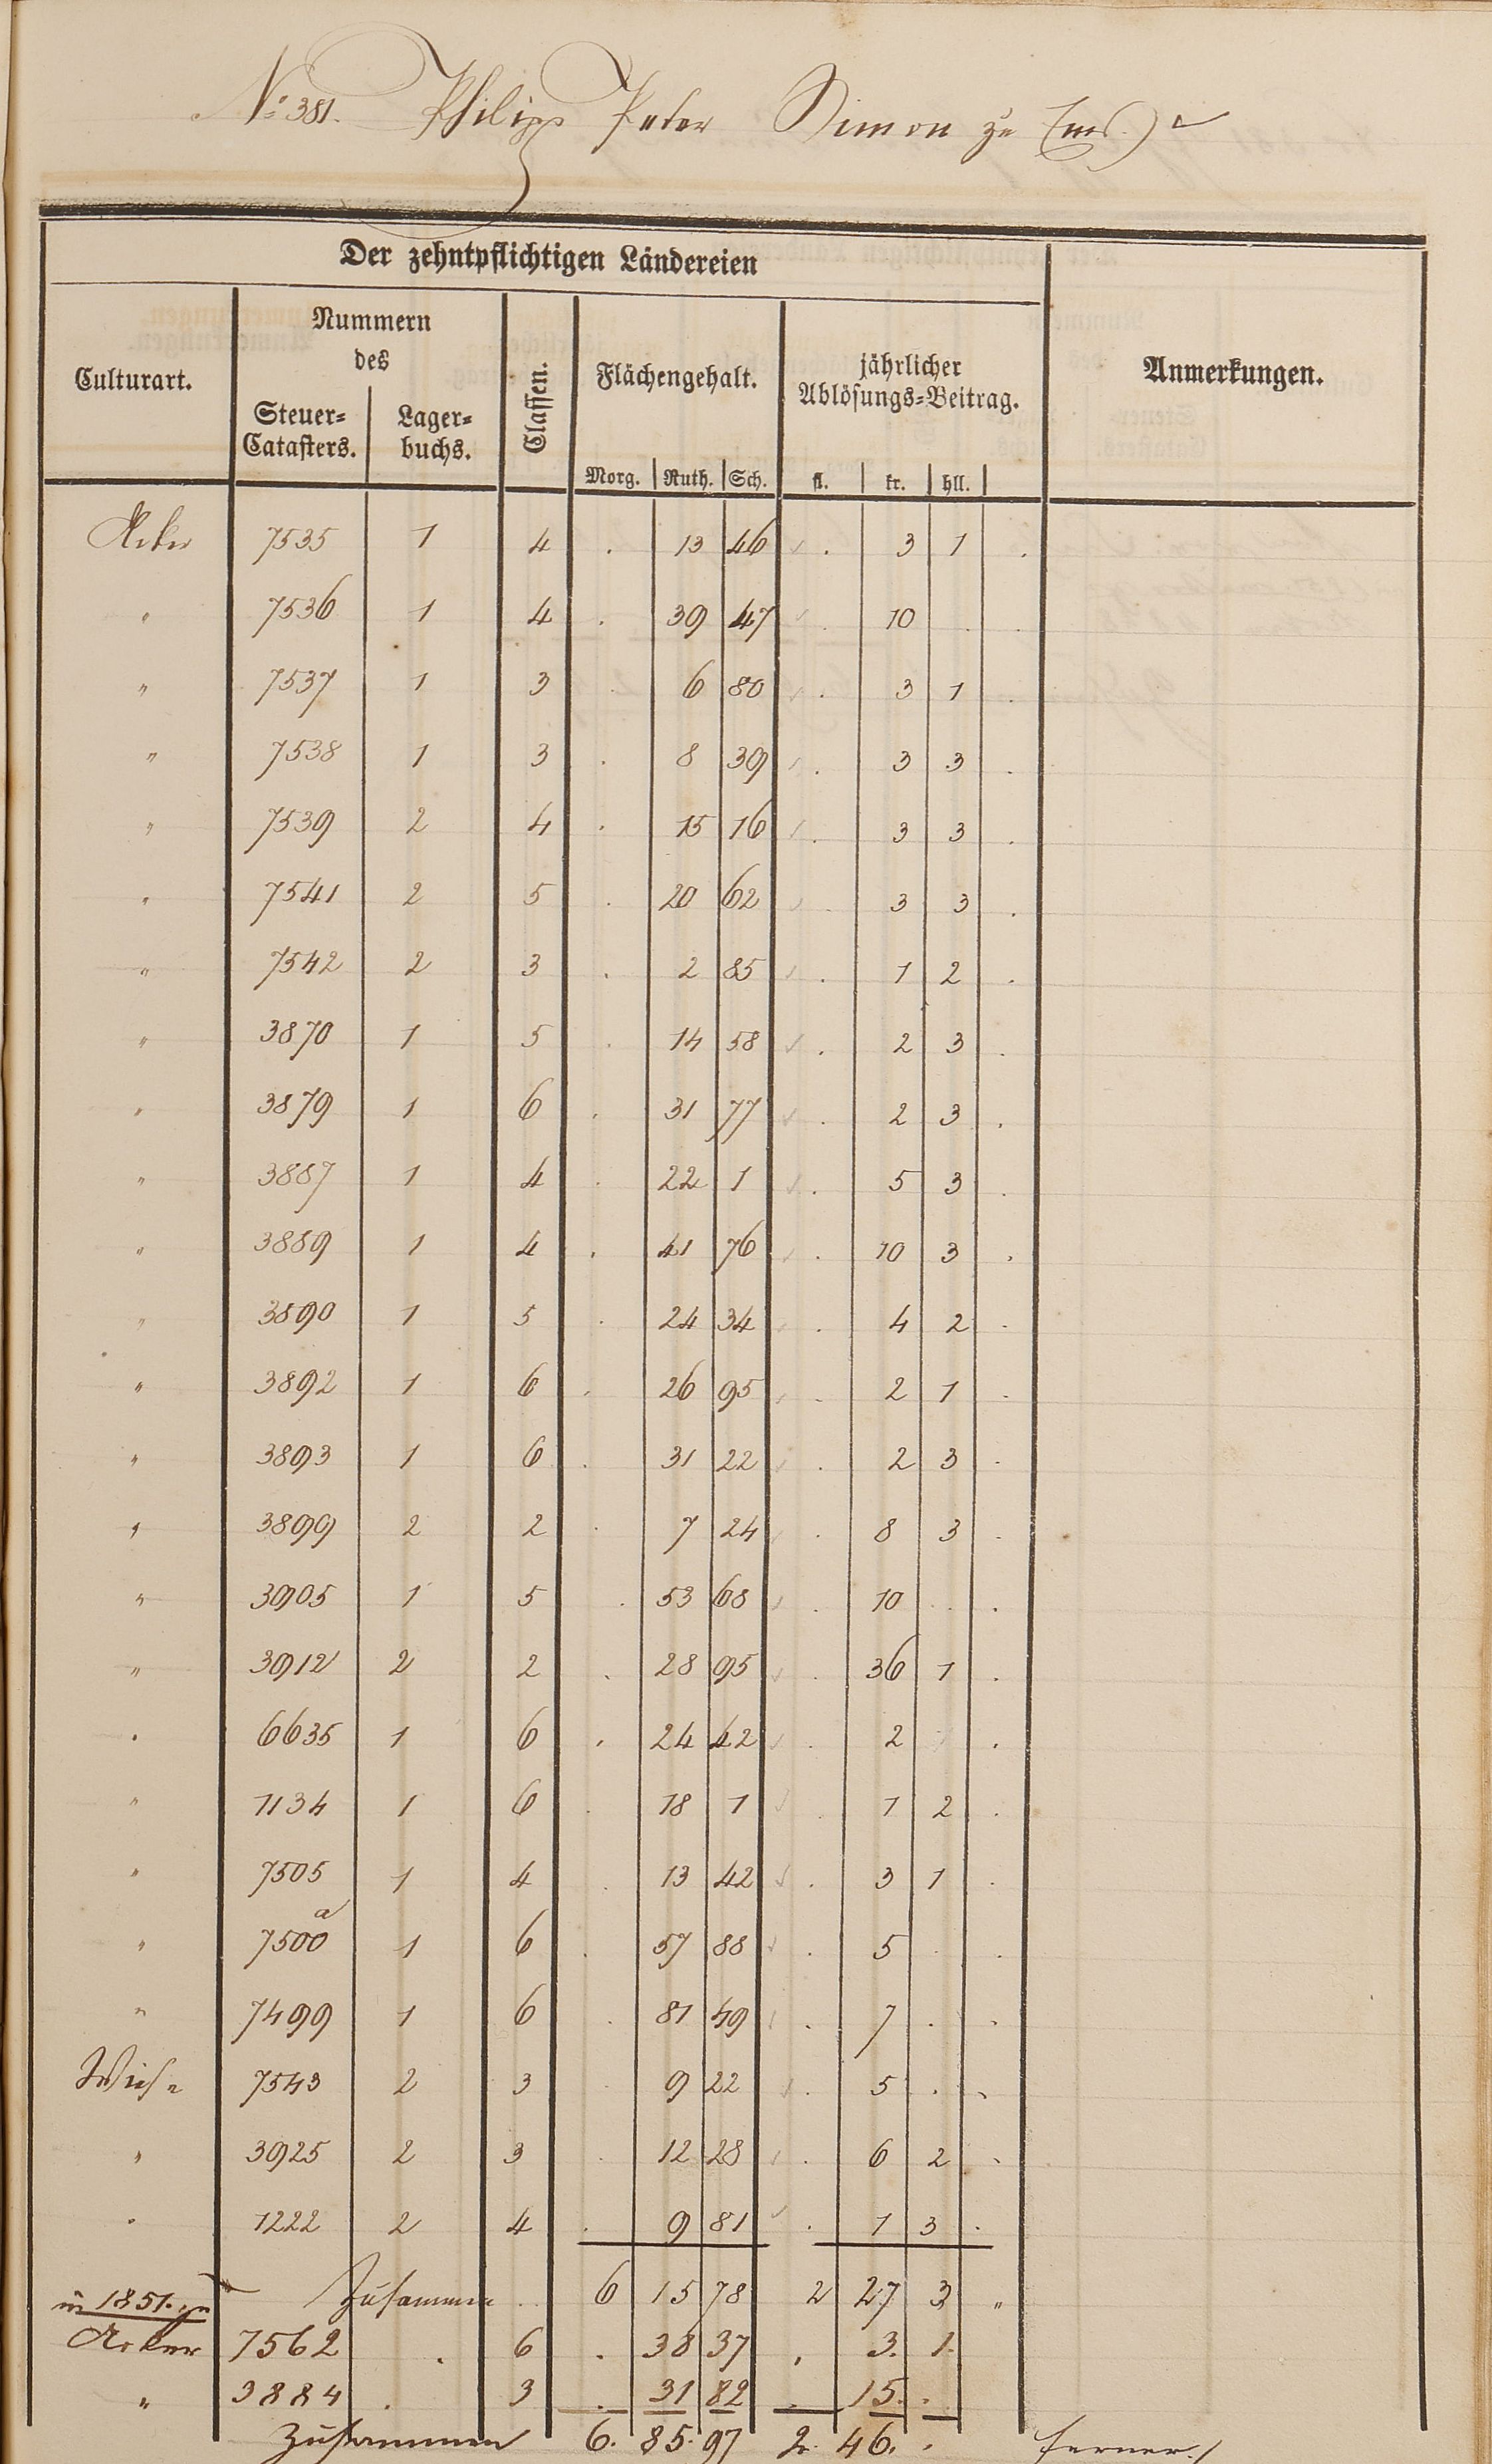 No 381. Philipp Peter Simon zu Ems.
Der zehntpflichtigen Ländereien
Culturart.
Nummern
des
Steuer=
Catasters.
Lager=
buchs.
Classen.
Flächengehalt.
Morg. Ruth. Sch.
jährlicher
Ablösungs=Beitrag.
fl. kr. hll.
Anmerkungen.
Acker 7535 1 4 . 13 46 . 3 1 .
" 7536 1 4 . 39 47 . 10 . .
" 7537 1 3 . 6 80 . 3 1 .
" 7538 1 3 . 8 39 . 3 3 .
" 7539 2 4 . 15 16 . 3 3 .
" 7541 2 5 . 20 62 . 3 3 .
" 7542 2 3 . 2 85 . 1 2 .
" 3870 1 5 . 14 58 . 2 3 .
" 3879 1 6 . 31 77 . 2 3 .
" 3887 1 4 . 22 1 . 5 3 .
" 3889 1 4 . 41 76 . 10 3 .
" 3890 1 5 . 24 34 . 4 2 .
" 3892 1 6 . 26 95 . 2 1 .
" 3893 1 6 . 31 22 . 2 3 .
" 3899 2 2 . 7 24 . 8 3 .
" 3905 1 5 . 53 68 . 10 . .
" 3912 2 2 . 28 95 . 36 1 .
" 6635 1 6 . 24 42 . 2 .
" 1134 1 6 . 18 1 . 1 2 .
" 7505 1 4 . 13 42 . 3 1 .
" 7500a 1 6 . 57 88 . 5 . .
" 7499 1 6 . 81 49 . 7 . .
Wiese 7543 2 3 9 22 . 5 . .
" 3925 2 3 . 12 28 . 6 2 .
" 1222 2 4 . 9 81 . 1 3 .
Zusammen . 6 15 78 2 27 3 "
in 1851. zu
Acker 7562 . 6 . 38 37 . 3. 1.
" 3884 . 3 . 31 82 . 15. .
Zusammen 6. 85. 97 2. 46. . ferner./